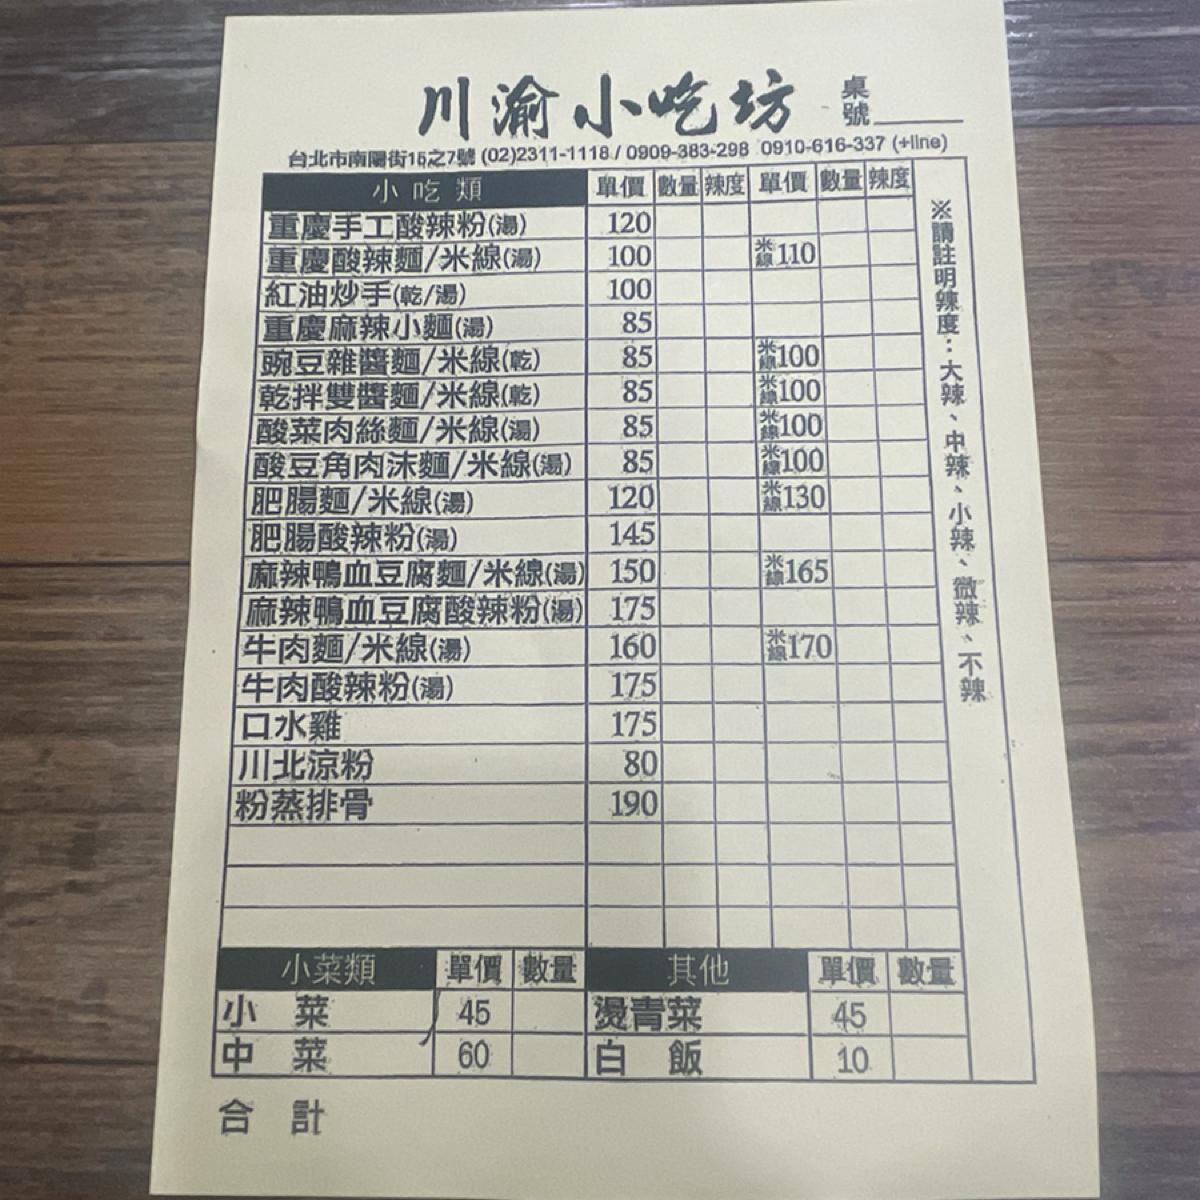 川渝小吃坊 桌號
台北市南陽街15之7號 (02)2311-1118 / 0909-383-298 0910-616-337 (+line)
小吃類 單價 數量 辣度 單價 數量 辣度
重慶手工酸辣粉(湯) 120
重慶酸辣麵/米線(湯) 100 米線110
紅油炒手(乾/湯) 100
重慶麻辣小麵(湯) 85
豌豆雜醬麵/米線(乾) 85 米線100
乾拌雙醬麵/米線(乾) 85 米線100
酸菜肉絲麵/米線(湯) 85 米線100
酸豆角肉沫麵/米線(湯) 85 米線100
肥腸麵/米線(湯) 120 米線130
肥腸酸辣粉(湯) 145
麻辣鴨血豆腐麵/米線(湯) 150 米線165
麻辣鴨血豆腐酸辣粉(湯) 175
牛肉麵/米線(湯) 160 米線170
牛肉酸辣粉(湯) 175
口水雞 175
川北涼粉 80
粉蒸排骨 190
※請註明辣度：大辣、中辣、小辣、微辣、不辣
小菜類 單價 數量 其他 單價 數量
小菜 45 燙青菜 45
中菜 60 白飯 10
合計